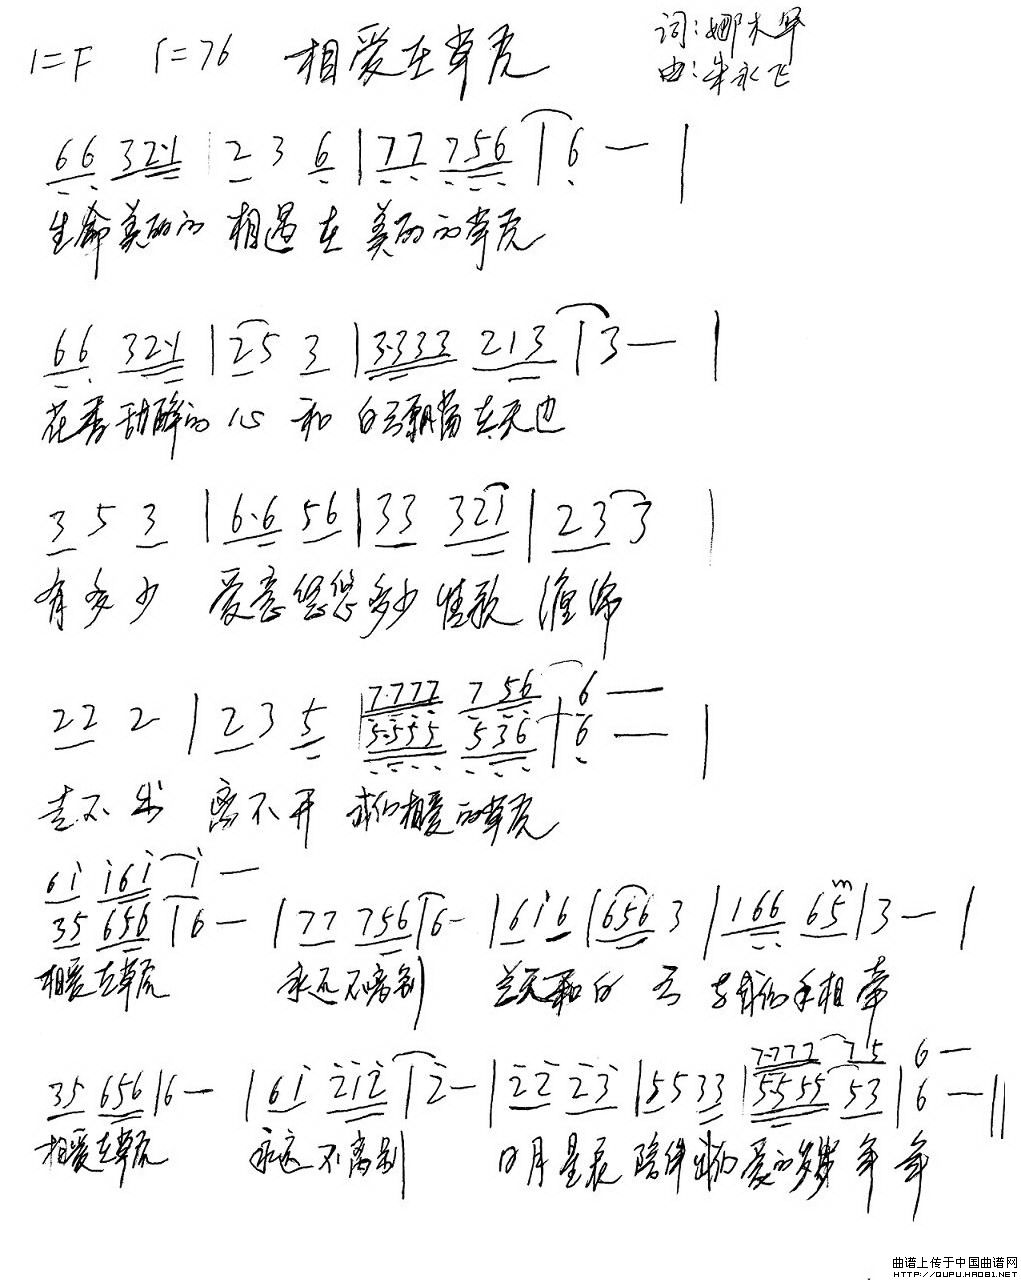 1=F ♩=76 相爱在草克
词:娜木罕
曲:朱永飞
66 32·1 | 2 3 6 | 77 756 | 6 — |
生命美丽的 相遇在 美丽的草克
66 32·1 | 25 3 | 3·333 213 | 3 — |
花香 醉的心 和 白云 在天边
3 5 3 | 6·6 56 | 33 321 | 23 3 |
有多少 爱意悠悠 多少 情歌
7·777 7 56 6 —
22 2 | 23 5 | 5·555 536 | 6 — |
走不出 离不开 我们相爱的草克
61 161 1 —
35 656 | 6 — | 77 756 | 6 — | 616 | 656 3 | 166 65 | 3 — |
相爱在草克 永远不 别 蓝天和白云 与我们手相牵
7·777 75 6 —
35 656 | 6 — | 61 212 | 2 — | 22 23 | 55 33 | 5555 53 | 6 — ||
相爱在草克 永远不离别 日月星辰 陪伴我们 爱的岁岁年年
曲谱上传于中国曲谱网
HTTP://QUPU.HAO8I.NET